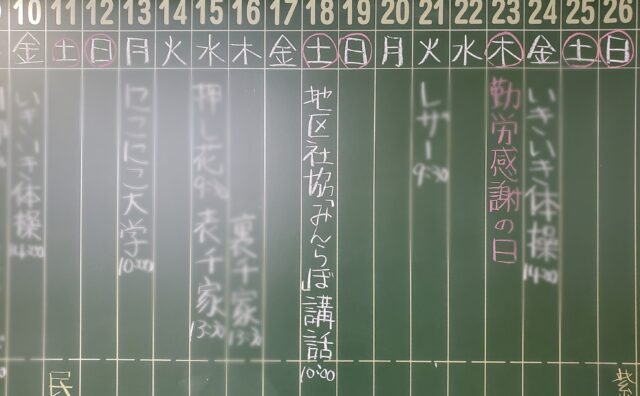 10 11 12 13 14 15 16 17 18 19 20 21 22 23 24 25 26
金 土 日 月 火 水 木 金 土 日 月 火 水 木 金 土 日
いきいき体操 14:00
にこにこ大学 10:00
押し花 9:30 表千家 13:30
裏千家 13:30
地区社協「みんらぼ」講話 10:00
レザー 9:30
勤労感謝の日
いきいき体操 14:00
民
紫